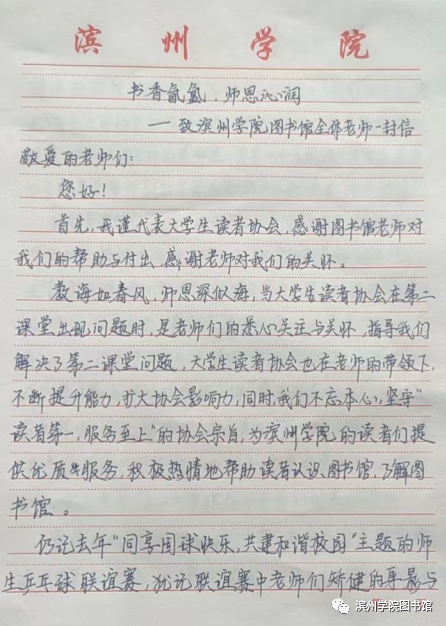 滨州学院
书香氤氲，师恩沁润
——致滨州学院图书馆全体老师一封信
敬爱的老师们：
您好！
首先，我谨代表大学生读者协会，感谢图书馆老师对
我们的帮助与付出，感谢老师对我们的关怀。
教诲如春风，师恩深似海，当大学生读者协会在第二
课堂出现问题时，是老师们的悉心关注与关怀，指导我们
解决了第二课堂问题，大学生读者协会也在老师的带领下，
不断提升能力，扩大协会影响力，同时，我们不忘本心，坚守“
读者第一，服务至上”的协会宗旨，为滨州学院的读者们提
供优质服务，积极热情地帮助读者认识图书馆，了解图
书馆。
仍记去年“同享国球快乐，共建和谐校园”主题的师
生乒乓球联谊赛，犹记联谊赛中老师们矫健的身影与
滨州学院图书馆